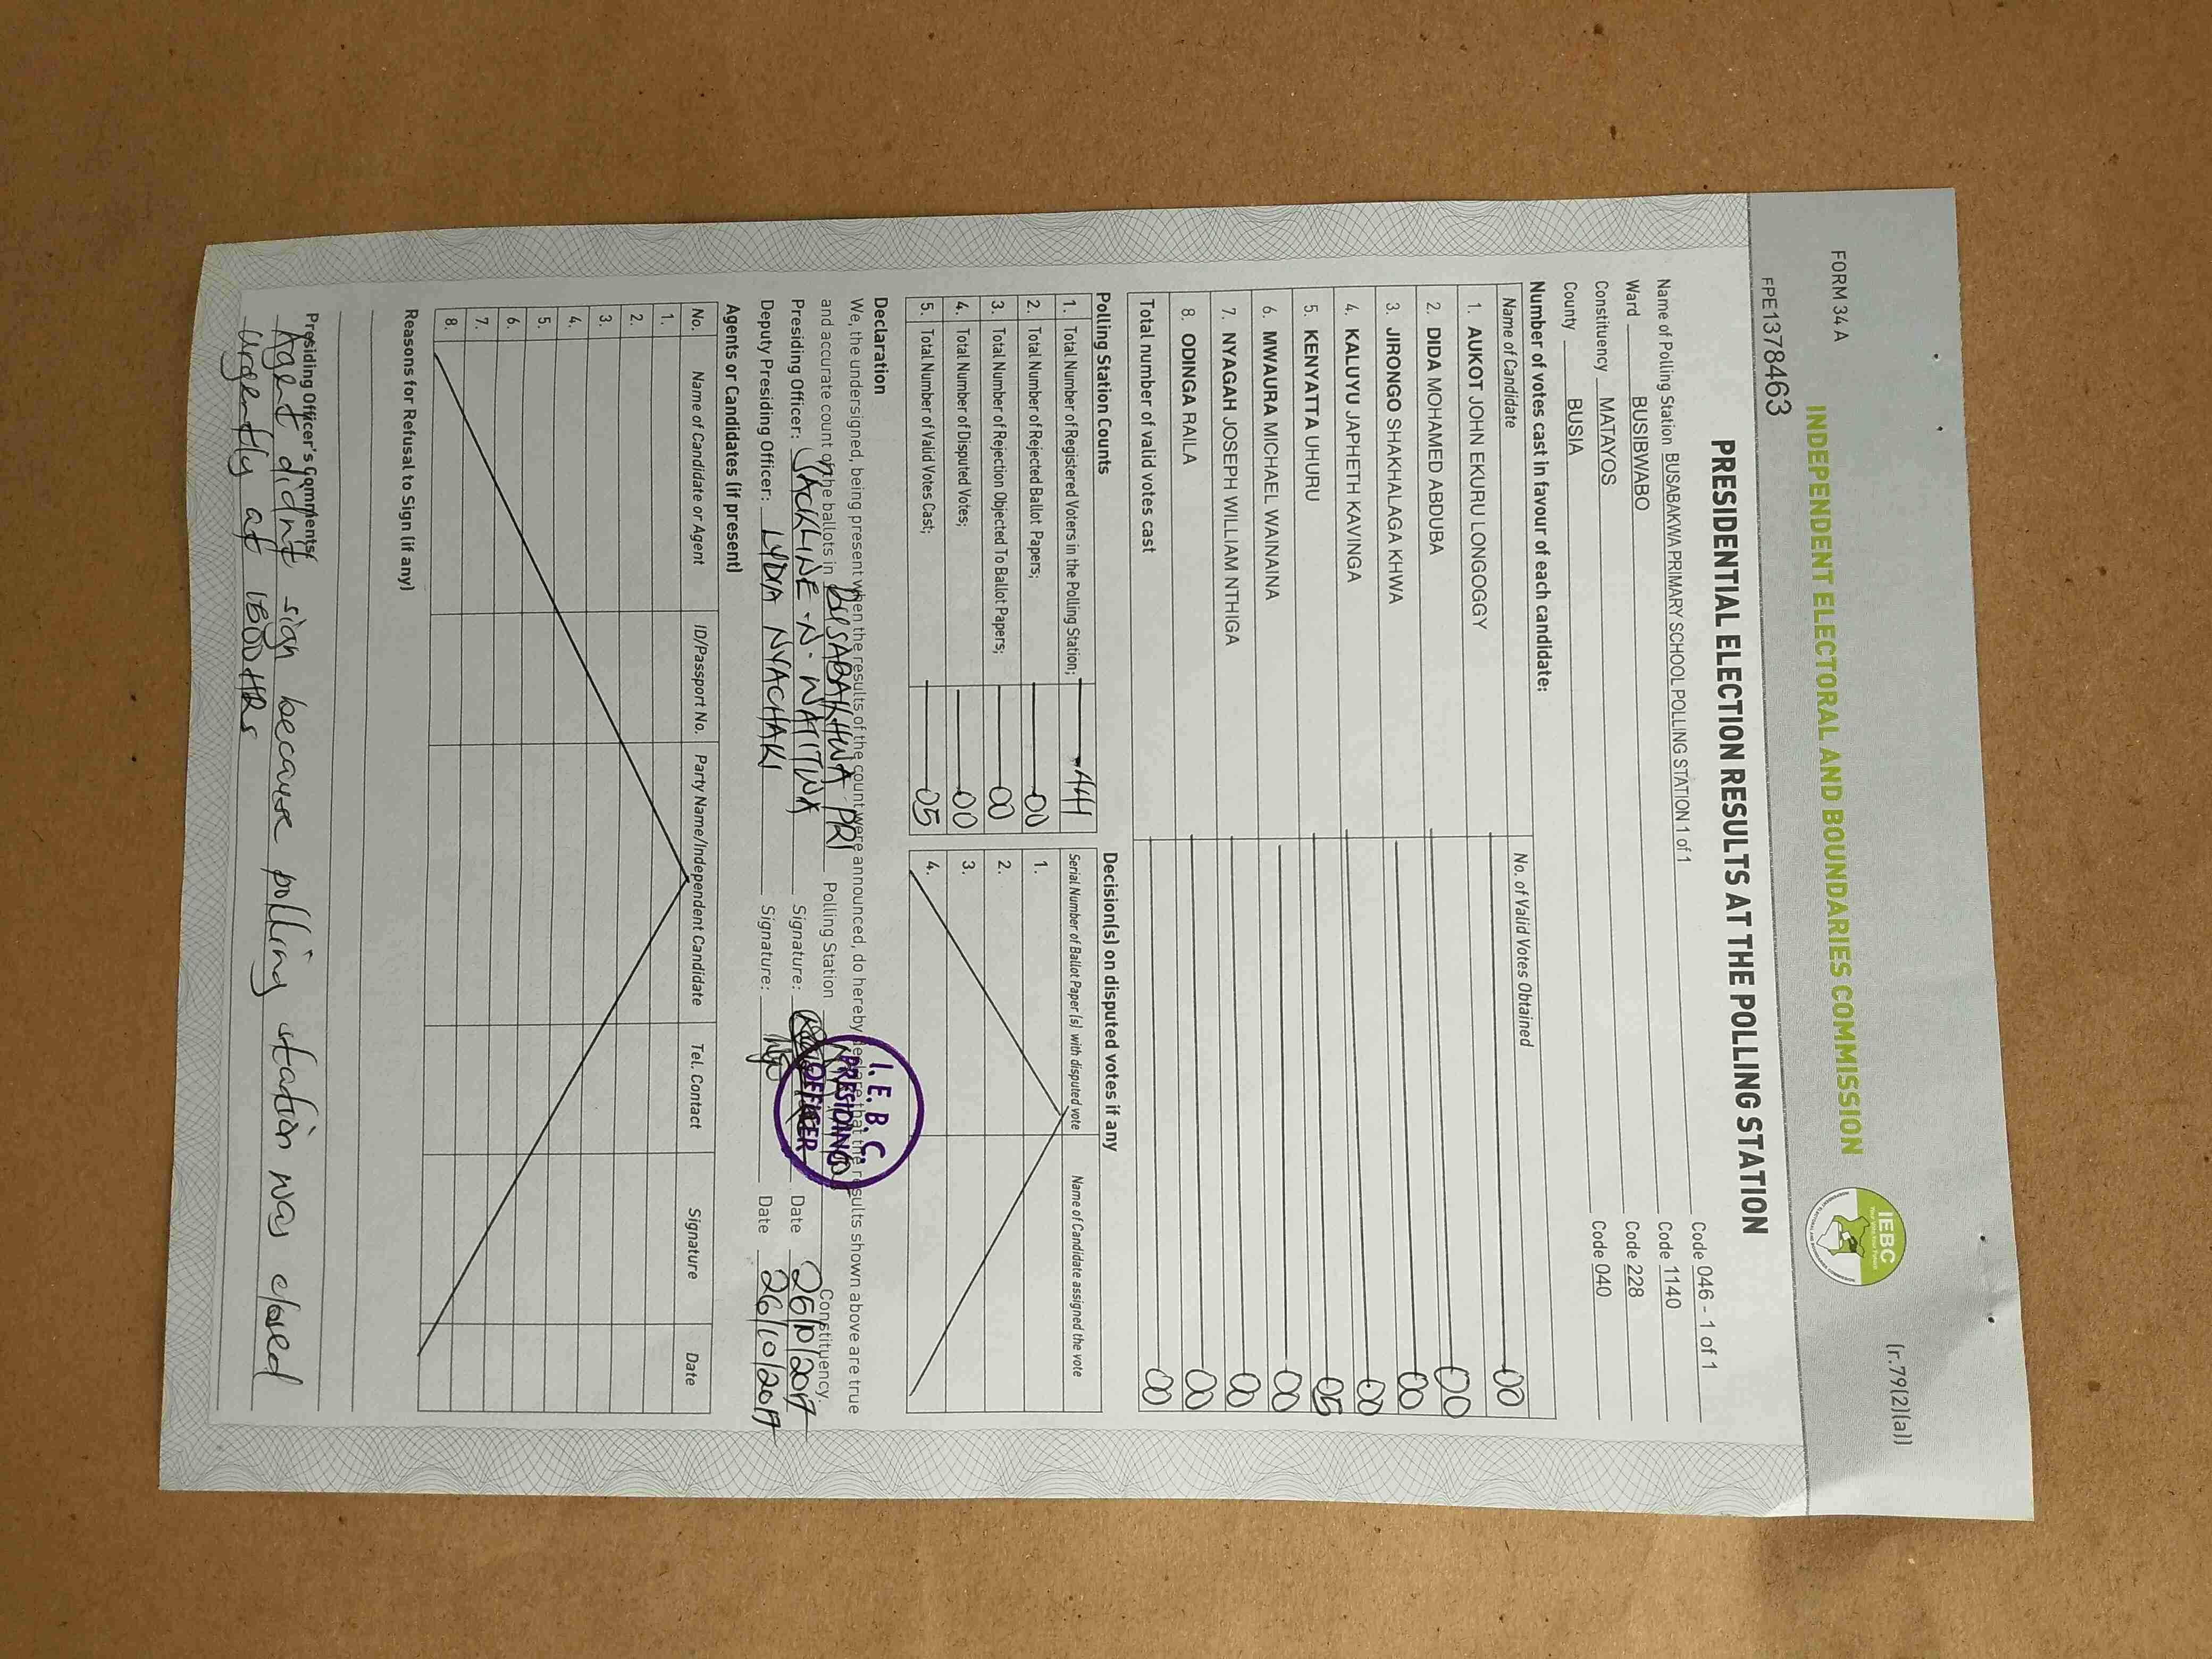 FORM 34 A
(r.79(2)(a))
INDEPENDENT ELECTORAL AND BOUNDARIES COMMISSION
IEBC
FPE1378463
PRESIDENTIAL ELECTION RESULTS AT THE POLLING STATION
Name of Polling Station BUSABAKWA PRIMARY SCHOOL POLLING STATION 1 of 1 Code 046 - 1 of 1
Ward BUSIBWABO Code 1140
Constituency MATAYOS Code 228
County BUSIA Code 040
Number of votes cast in favour of each candidate:
Name of Candidate No. of Valid Votes Obtained
1. AUKOT JOHN EKURU LONGOGGY 00
2. DIDA MOHAMED ABDUBA 00
3. JIRONGO SHAKHALAGA KHWA 00
4. KALUYU JAPHETH KAVINGA 00
5. KENYATTA UHURU 05
6. MWAURA MICHAEL WAINAINA 00
7. NYAGAH JOSEPH WILLIAM NTHIGA 00
8. ODINGA RAILA 00
Total number of valid votes cast 00
Polling Station Counts
1. Total Number of Registered Voters in the Polling Station; 441
2. Total Number of Rejected Ballot Papers; 00
3. Total Number of Rejection Objected To Ballot Papers; 00
4. Total Number of Disputed Votes; 00
5. Total Number of Valid Votes Cast; 05
Decision(s) on disputed votes if any
Serial Number of Ballot Paper(s) with disputed vote Name of Candidate assigned the vote
1.
2.
3.
4.
Declaration
We, the undersigned, being present when the results of the count were announced, do hereby declare that the results shown above are true
and accurate count of the ballots in BUSABAKHWA PRI Polling Station Constituency.
Presiding Officer: JACKLINE N. WATITWA Signature: Date 26/10/2017
Deputy Presiding Officer: LYDIA NYACHAKI Signature: Date 26/10/2017
I.E.B.C.
PRESIDING
OFFICER
Agents or Candidates (if present)
No. Name of Candidate or Agent ID/Passport No. Party Name/Independent Candidate Tel. Contact Signature Date
1.
2.
3.
4.
5.
6.
7.
8.
Reasons for Refusal to Sign (if any)
Presiding Officer's Comments
Agent didnt sign because polling station was closed
urgently at 1800HRS